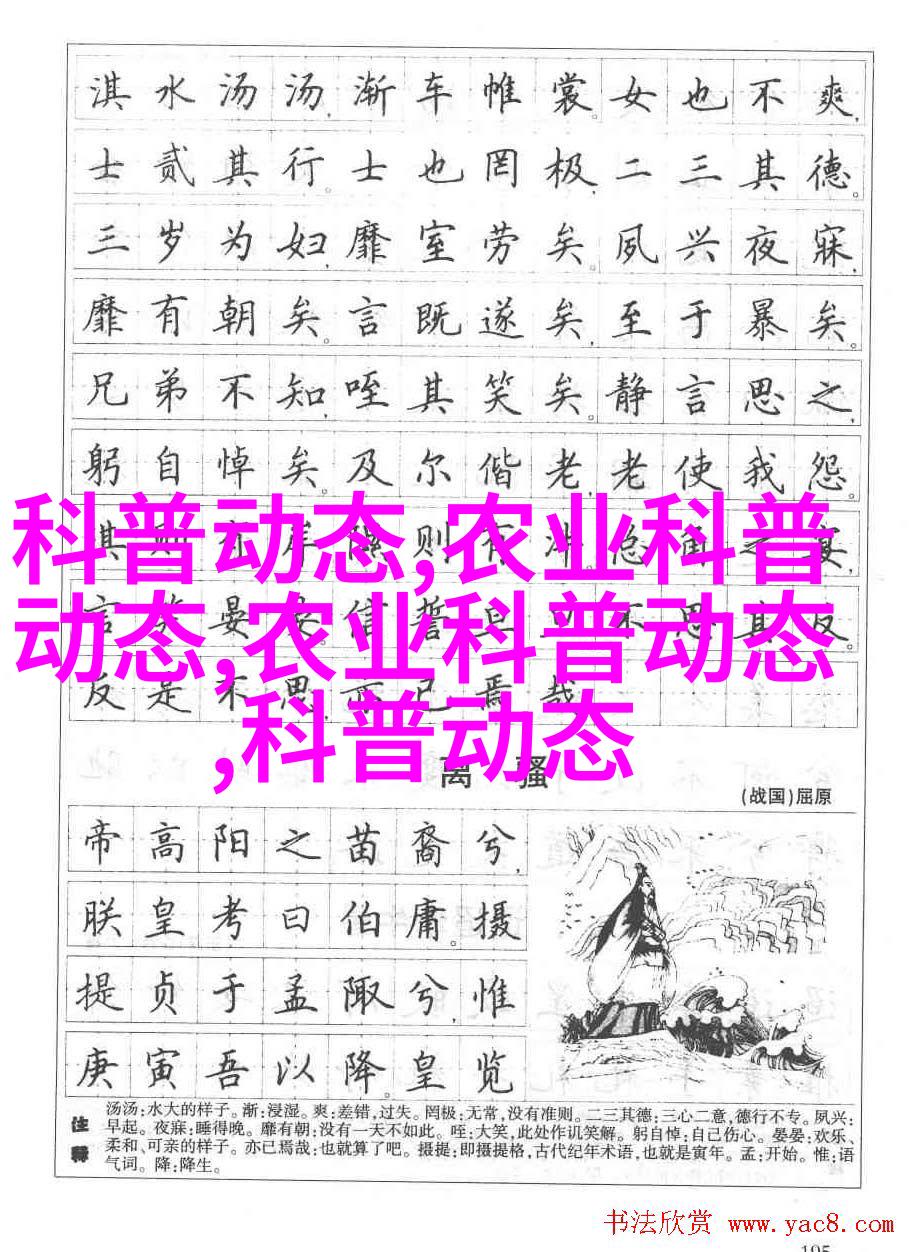 淇水汤汤,渐车帷裳。女也不爽,
士贰其行。士也罔极,二三其德。
三岁为妇,靡室劳矣。夙兴夜寐,
靡有朝矣。言既遂矣,至于暴矣。
兄弟不知,咥其笑矣。静言思之,
躬自悼矣。及尔偕老,老使我怨。
科普动态,农业科普
淇则有岸,隰则有泮。总角之宴,
动态,农业科普动态
言笑晏晏。信誓旦旦,不思其反。
反是不思,亦已焉哉
,科普动态
离骚
(战国)屈原
帝高阳之苗裔兮,
朕皇考曰伯庸。摄
提贞于孟陬兮,惟
庚寅吾以降。皇览
注释
汤汤:水大的样子。渐:浸湿。爽:差错,过失。罔极:无常,没有准则。二三其德:三心二意,德行不专。夙兴:
早起。夜寐:睡得晚。靡有朝:没有一天不如此。咥:大笑,此处作讥笑解。躬自悼:自己伤心。晏晏:欢乐、
柔和、可亲的样子。亦已焉哉:也就算了吧。摄提:即摄提格,古代纪年术语,也就是寅年。孟:开始。惟:语
气词。降:降生。
书法欣赏 www.yac8.com
105